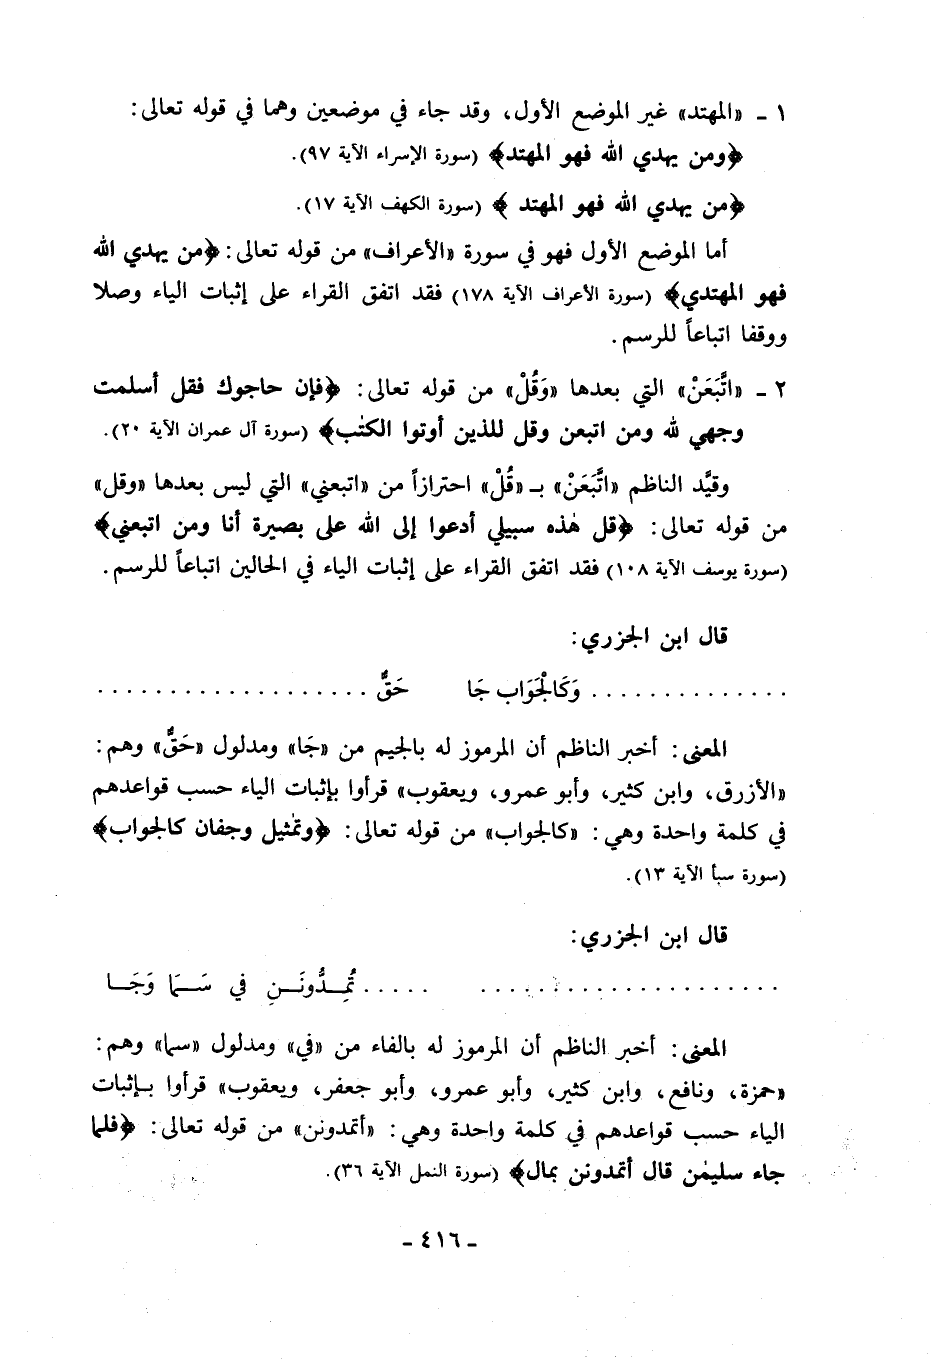 ١ ـ «المهتد» غير الموضع الأول، وقد جاء في موضعين وهما في قوله تعالى:
﴿ومن يهدي الله فهو المهتد﴾ (سورة الإسراء الآية ٩٧).
﴿من يهدي الله فهو المهتد ﴾ (سورة الكهف الآية ١٧).
أما الموضع الأول فهو في سورة «الأعراف» من قوله تعالى: ﴿من يهدي الله
فهو المهتدي﴾ (سورة الأعراف الآية ١٧٨) فقد اتفق القراء على إثبات الياء وصلا
ووقفا اتباعاً للرسم.
٢ ـ «اتَّبَعَنْ» التي بعدها «وَقُلْ» من قوله تعالى: ﴿فإن حاجوك فقل أسلمت
وجهي لله ومن اتبعن وقل للذين أوتوا الكتٰب﴾ (سورة آل عمران الآية ٢٠).
وقيَّد الناظم «اتَّبَعَنْ» بـ «قُلْ» احترازاً من «اتبعني» التي ليس بعدها «وقل»
من قوله تعالى: ﴿قل هٰذه سبيلي أدعوا إلى الله على بصيرة أنا ومن اتبعني﴾
(سورة يوسف الآية ١٠٨) فقد اتفق القراء على إثبات الياء في الحالين اتباعاً للرسم.
قال ابن الجزري:
. . . . . . . . . . . . . . وَكَالْجَوَاب جَا حَقٌّ . . . . . . . . . . . . . . . . . . .
المعنى: أخبر الناظم أن المرموز له بالجيم من «جَا» ومدلول «حَقٌّ» وهم:
«الأزرق، وابن كثير، وأبو عمرو، ويعقوب» قرأوا بإثبات الياء حسب قواعدهم
في كلمة واحدة وهي: «كالجواب» من قوله تعالى: ﴿وتمٰثيل وجفان كالجواب﴾
(سورة سبأ الآية ١٣).
قال ابن الجزري:
. . . . . . . . . . . . . . . . . . . . . . . . . . تُمِـدُّونَـنِ في سَـمَا وَجَـا
المعنى: أخبر الناظم أن المرموز له بالفاء من «في» ومدلول «سما» وهم:
«حمزة، ونافع، وابن كثير، وأبو عمرو، وأبو جعفر، ويعقوب» قرأوا بـإثبات
الياء حسب قواعدهم في كلمة واحدة وهي: «أتمدونن» من قوله تعالى: ﴿فلما
جاء سليمٰن قال أتمدونن بمال﴾ (سورة النمل الآية ٣٦).
ـ ٤١٦ ـ